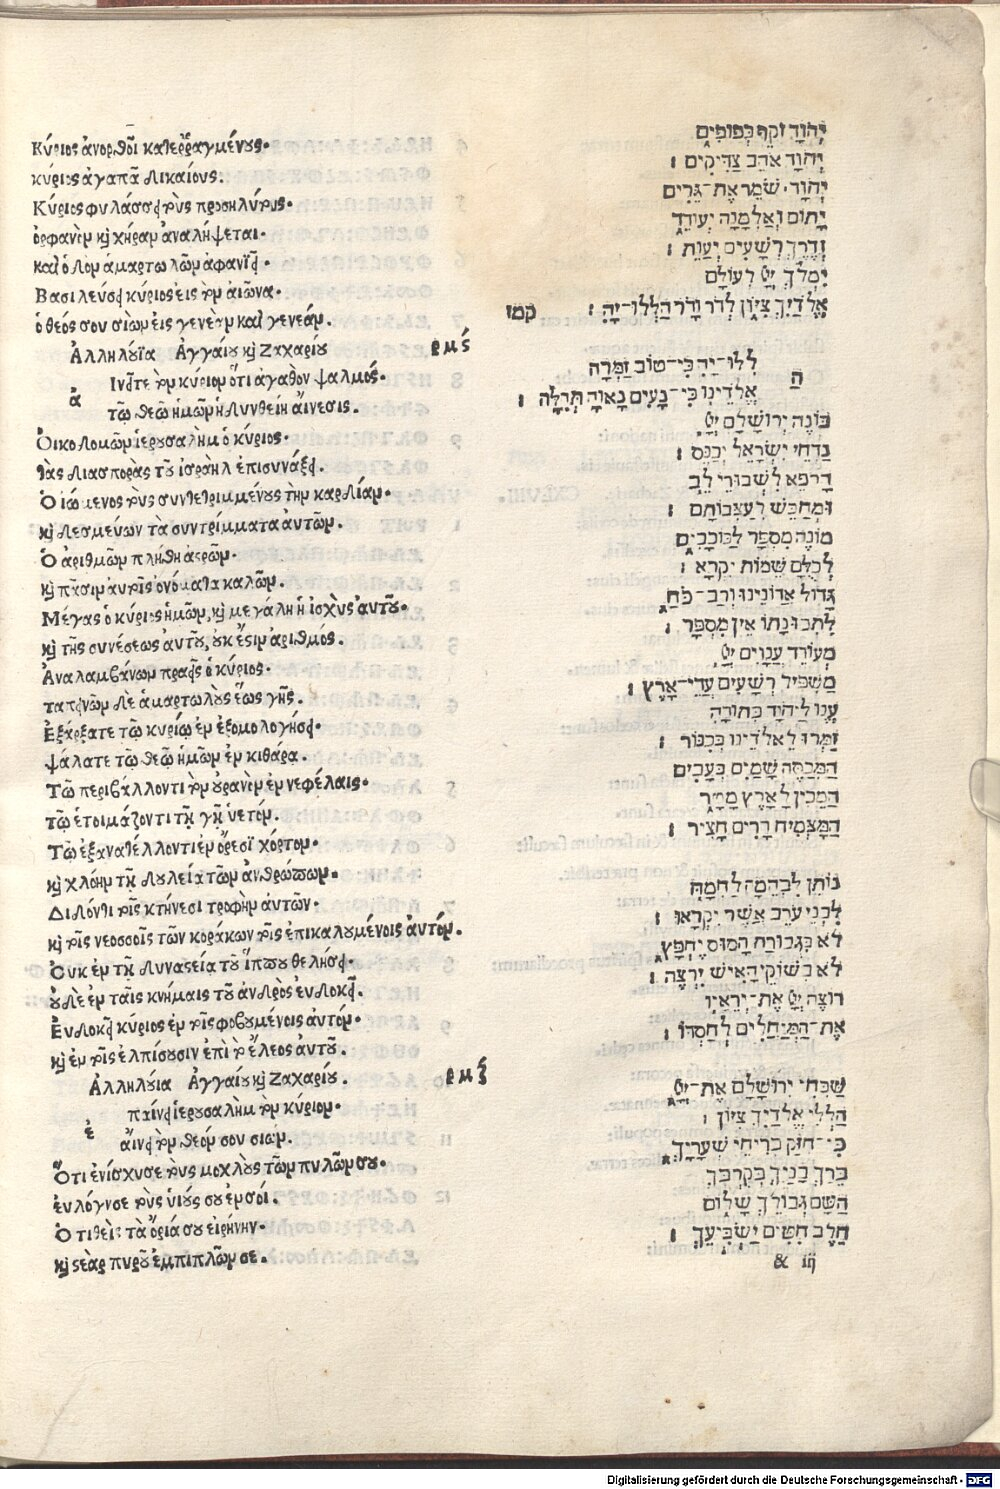 Κύριος ἀνορθοῖ κατερραγμένους.
κύριος ἀγαπᾶ δικαίους.
Κύριος φυλάσσει τοὺς προσηλύτους.
ὀρφανὸν καὶ χήραν ἀναλήψεται.
καὶ ὁδὸν ἁμαρτωλῶν ἀφανιεῖ.
Βασιλεύσει κύριος εἰς τὸν αἰῶνα.
ὁ θεός σου σιὼμ εἰς γενεὰν καὶ γενεάν.
Ἀλληλούϊα Ἀγγαίου καὶ Ζαχαρίου ρμς
Ἰνεῖτε τὸν κύριον ὅτι ἀγαθὸν ψαλμός.
ἀ
τῷ θεῷ ἡμῶν ἡδυνθείη αἴνεσις.
Οἰκοδομῶν ἱερουσαλὴμ ὁ κύριος.
τὰς διασπορὰς τοῦ ἰσραὴλ ἐπισυνάξει.
Ὁ ἰώμενος τοὺς συντετριμμένους τὴν καρδίαν.
καὶ δεσμεύων τὰ συντρίμματα αὐτῶν.
Ὁ ἀριθμῶν πλήθη ἄστρων.
καὶ πᾶσιν αὐτοῖς ὀνόματα καλῶν.
Μέγας ὁ κύριος ἡμῶν, καὶ μεγάλη ἡ ἰσχὺς αὐτοῦ.
καὶ τῆς συνέσεως αὐτοῦ, οὐκ ἔστιν ἀριθμος.
Ἀναλαμβάνων πραεῖς ὁ κύριος.
ταπεινῶν δὲ ἁμαρτωλοὺς ἕως γῆς.
Ἐξάρξατε τῷ κυρίῳ ἐν ἐξομολογήσει.
ψάλατε τῷ θεῷ ἡμῶν ἐν κιθάρα.
Τῷ περιβάλλοντι τὸν οὐρανὸν ἐν νεφέλαις.
τῷ ἑτοιμάζοντι τῇ γῇ ὑετόν.
Τῷ ἐξανατέλλοντι ἐν ὄρεσϊ χόρτον.
καὶ χλόην τῇ δουλεία τῶν ἀνθρώπων.
Διδόντι τοῖς κτήνεσι τροφὴν αὐτῶν.
καὶ τοῖς νεοσσοῖς τῶν κοράκων τοῖς ἐπικαλουμένοις αὐτόν.
Οὐκ ἐν τῇ δυναστεία τοῦ ἵππου θελήσει.
οὐδὲ ἐν ταῖς κνήμαις τοῦ ἀνδρὸς ἐυδοκεῖ.
Ἐυδοκεῖ κύριος ἐν τοῖς φοβουμένοις αὐτόν.
καὶ ἐν τοῖς ἐλπίσουσιν ἐπὶ τὸ ἔλεος αὐτοῦ.
Ἀλληλούια Ἀγγαίου καὶ Ζαχαρίου. ρμζ
παίνει ἱερουσαλὴμ τὸν κύριον.
ἐ
αἴνει τὸν θεόν σου σιών.
Ὅτι ἐνίσχυσε τοὺς μοχλοὺς τῶν πυλῶν σου.
ἐυλόγησε τοὺς ὑιούς σου ἐν σοί.
Ὁ τιθεὶς τὰ ὅριά σου εἰρήνην.
καὶ στέαρ πυροῦ ἐμπιπλῶν σε.
יְהוָֹד זֹקֵף כְּפוּפִים
יְהוָֹד אֹהֵב צַדִּיקִים :
יְהוָֹד שֹׁמֵר אֶת־גֵּרִים
יָתוֹם וְאַלְמָנָה יְעוֹדֵד
וְדֶרֶךְ רְשָׁעִים יְעַוֵּת :
יִמְלֹךְ יְיָ לְעוֹלָם
אֱלֹדַיִךְ צִיּוֹן לְדֹר וָדֹר הַלְלוּ־יָהּ : קמו
ה לְלוּ־יָהּ כִּי־טוֹב זַמְּרָה
אֱלֹדֵינוּ כִּי־נָעִים נָאוָה תְהִלָּה :
בּוֹנֵה יְרוּשָׁלַם יְיָ
נִדְחֵי יִשְׂרָאֵל יְכַנֵּס :
הָרֹפֵא לִשְׁבוּרֵי לֵב
וּמְחַבֵּשׁ לְעַצְּבוֹתָם :
מוֹנֶה מִסְפָּר לַכּוֹכָבִים
לְכֻלָּם שֵׁמוֹת יִקְרָא :
גָּדוֹל אֲדוֹנֵינוּ וְרַב־כֹּחַ
לִתְבוּנָתוֹ אֵין מִסְפָּר :
מְעוֹדֵד עֲנָוִים יְיָ
מַשְׁפִּיל רְשָׁעִים עֲדֵי־אָרֶץ :
עֱנוּ לַיהוָֹד בְּתוֹדָה
זַמְּרוּ לֵאלֹדֵינוּ בְכִנּוֹר :
הַמְכַסֶּה שָׁמַיִם בְּעָבִים
הַמֵּכִין לָאָרֶץ מָטָר
הַמַּצְמִיחַ הָרִים חָצִיר :
נוֹתֵן לִבְהֵמָה לַחְמָהּ
לִבְנֵי עֹרֵב אֲשֶׁר יִקְרָאוּ :
לֹא בִגְבוּרַת הַסּוּס יֶחְפָּץ
לֹא בְשׁוֹקֵי הָאִישׁ יִרְצֶה :
רוֹצֶה יְיָ אֶת־יְרֵאָיו
אֶת־הַמְיַחֲלִים לְחַסְדּוֹ :
שַׁבְּחִי יְרוּשָׁלַם אֶת־יְיָ
הַלְלִי אֱלֹדַיִךְ צִיּוֹן :
כִּי־חִזַּק בְּרִיחֵי שְׁעָרָיִךְ
בֵּרַךְ בָּנַיִךְ בְּקִרְבֵּךְ
הַשָּׂם גְּבוּלֵךְ שָׁלוֹם
חֵלֶב חִטִּים יַשְׂבִּיעֵךְ :
& iij
Digitalisierung gefördert durch die Deutsche Forschungsgemeinschaft - DFG